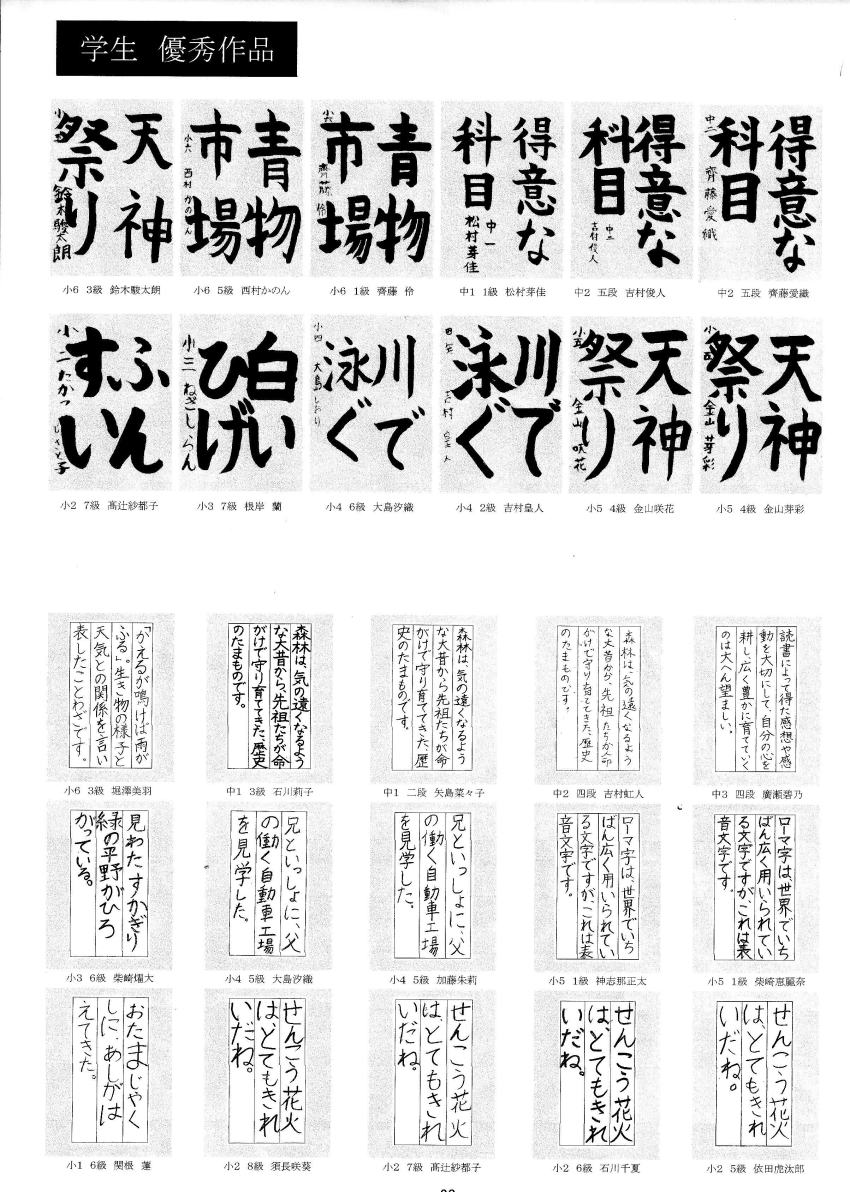 学生 優秀作品
得意な
科目
中二 齊藤愛織
中2 五段 齊藤愛織
得意な
科目
中二 吉村俊人
中2 五段 吉村俊人
得意な
科目
中一 松村芽佳
中1 1級 松村芽佳
青物
市場
小六 齊藤 伶
小6 1級 齊藤 伶
青物
市場
小六 西村かのん
小6 5級 西村かのん
天神
祭り
鈴木駿太朗
小6 3級 鈴木駿太朗
天神
祭り
小五 金山芽彩
小5 4級 金山芽彩
天神
祭り
小五 金山咲花
小5 4級 金山咲花
川で
泳ぐ
吉村皇人
小4 2級 吉村皇人
川で
泳ぐ
小四 大島しおり
小4 6級 大島汐織
白い
ひげ
小三 ねぎしらん
小3 7級 根岸 蘭
ふん
すい
小二 たかつ
小2 7級 髙辻紗都子
読書によって得た感想や感
動を大切にして、自分の心を
耕し、広く豊かに育てていく
のは大へん望ましい。
中3 四段 廣瀬碧乃
森林は、気の遠くなるよう
な大昔から、先祖たちが命
がけで守り育ててきた、歴史
のたまものです。
中2 四段 吉村虹人
森林は、気の遠くなるよう
な大昔から先祖たちが命
がけで守り育ててきた、歴
史のたまものです。
中1 二段 矢島菜々子
森林は、気の遠くなるよう
な大昔から、先祖たちが命
がけで守り育ててきた、歴史
のたまものです。
中1 3級 石川莉子
「かえるが鳴けば雨が
ふる」。生き物の様子と
天気との関係を言い
表したことわざです。
小6 3級 堀澤美羽
ローマ字は、世界でいち
ばん広く用いられてい
る文字ですが、これは表
音文字です。
小5 1級 柴崎恵麗奈
ローマ字は、世界でいち
ばん広く用いられてい
る文字ですが、これは表
音文字です。
小5 1級 神志那正太
兄といっしょに、父
の働く自動車工場
を見学した。
小4 5級 加藤朱莉
兄といっしょに、父
の働く自動車工場
を見学した。
小4 5級 大島汐織
見わたすかぎり
緑の平野がひろ
がっている。
小3 6級 柴崎燿大
せんこう花火
は、とてもきれ
いだね。
小2 5級 依田虎汰郎
せんこう花火
は、とてもきれ
いだね。
小2 6級 石川千夏
せんこう花火
は、とてもきれ
いだね。
小2 7級 髙辻紗都子
せんこう花火
は、とてもきれ
いだね。
小2 8級 須長咲葵
おたまじゃく
しに、あしがは
えてきた。
小1 6級 関根 蓮